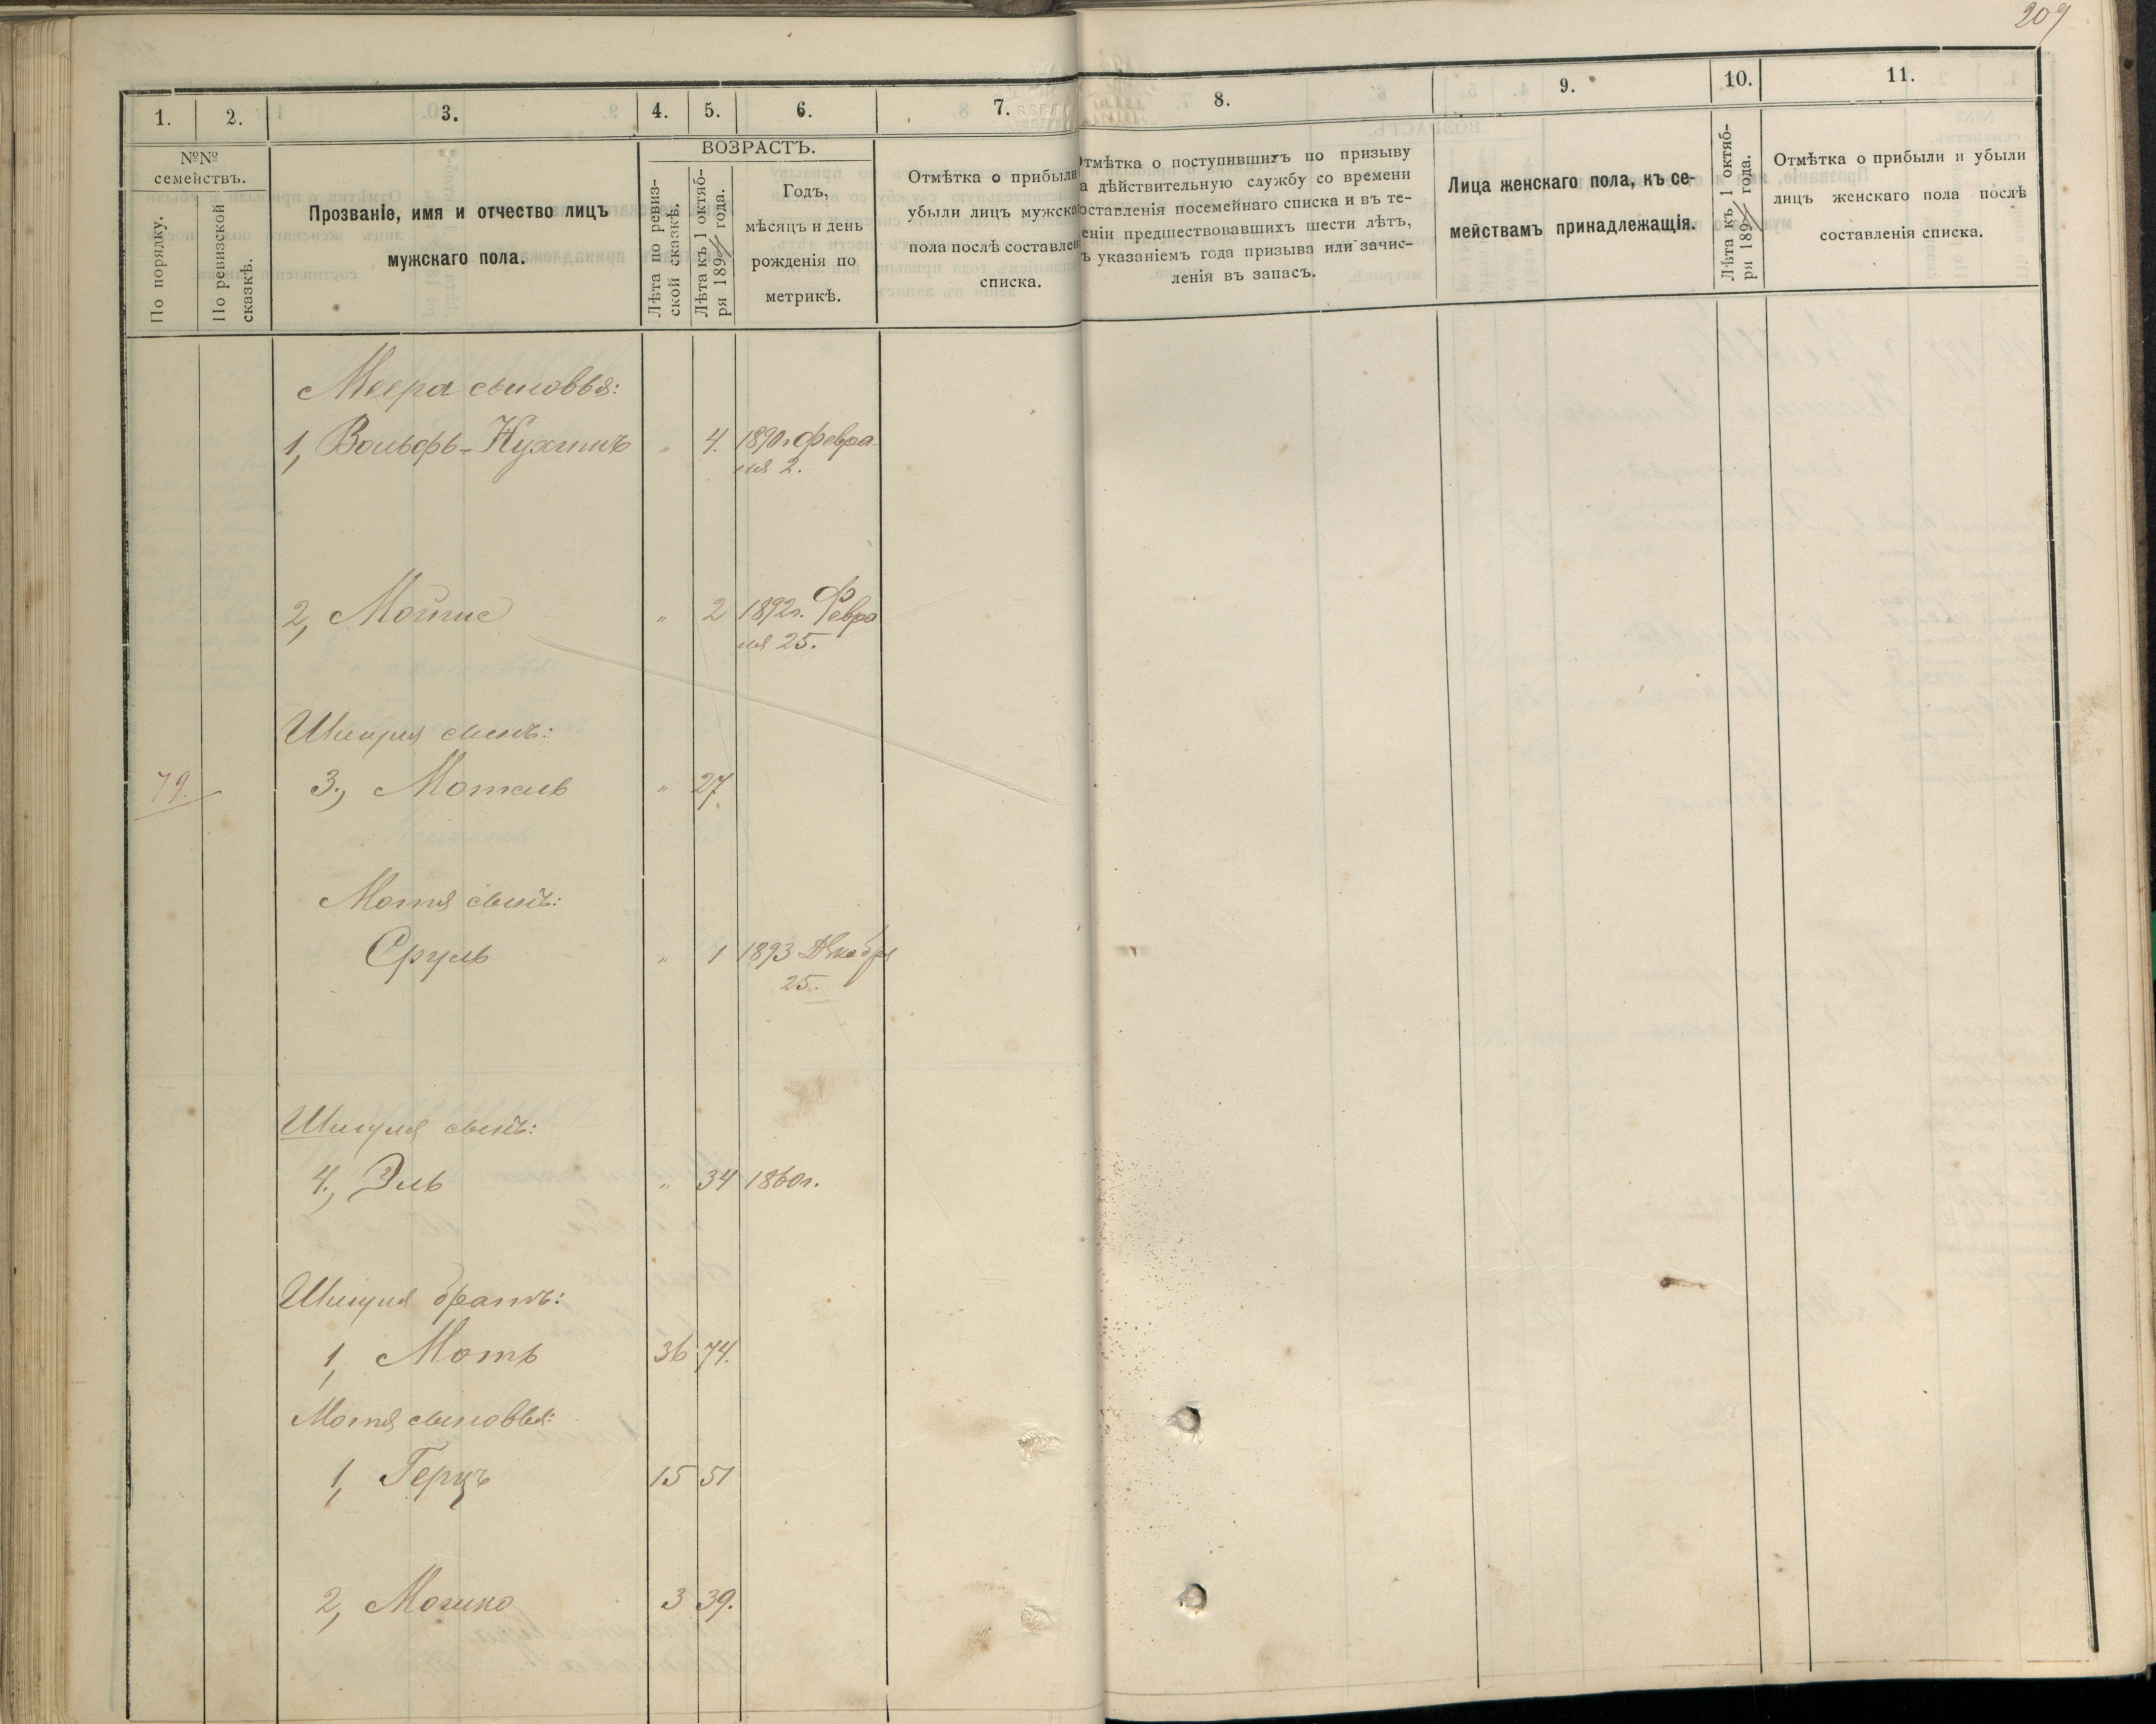 209
1.
2.
3.
4.
5.
6.
7.
8.
9.
10.
11.
№№
семействъ.
По порядку.
По ревизской
сказкѣ.
Прозваніе, имя и отчество лицъ
мужскаго пола.
ВОЗРАСТЪ.
Лѣта по ревиз-
ской сказкѣ.
Лѣта къ 1 октяб-
ря 1894 года.
Годъ,
мѣсяцъ и день
рожденія по
метрикѣ.
Отмѣтка о прибыли
убыли лицъ мужска
пола послѣ составлен
списка.
Отмѣтка о поступившихъ по призыву
а дѣйствительную службу со времени
оставленія посемейнаго списка и въ те-
еніи предшествовавшихъ шести лѣтъ,
ъ указаніемъ года призыва или зачис-
ленія въ запасъ.
Лица женскаго пола, къ се-
мействамъ принадлежащія.
Лѣта къ 1 октяб-
ря 1894 года.
Отмѣтка о прибыли и убыли
лицъ женскаго пола послѣ
составленія списка.
Меера сыновья:
1, Вольфъ-Нухимъ " 4. 1890 г Февра
ля 2.
2, " 2 1892 г. Февра
ля 25.
сынъ:
79. 3., Мотель " 27
Мотя сынъ:
Сруль " 1 1893 Декабря
25.
сынъ:
4., Эль " 34 1860 г.
братъ:
1, Моть 36 74.
Мотя сыновья:
1, Герцъ 15 51
2, Мошко 3 39.